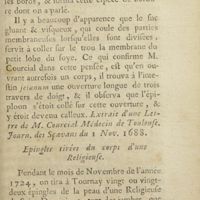 les bords, & forma cette espece de bordu-
re dont on a parlé.
Il y a beaucoup d'apparence que le suc
gluant & visqueux, qui coule des parties
membraneuses lorsqu'elles sont divisées,
servit à coller sur le trou la membrane du
petit lobe du foye. Ce qui confirme M.
Courcial dans cette pensée, est qu'en ou-
vrant autrefois un corps, il trouva à l'inte-
stin jejunum une ouverture longue de trois
travers de doigt, & il observa que l'épi-
ploon s'étoit collé sur cette ouverture, &
y étoit devenu calleux. Extrait d'une Let-
tre de M. Courcial Médecin de Toulouse.
Journ. des Sçavans du 1 Nov. 1688.
Epingles tirées du corps d'une
Religieuse.
Pendant le mois de Novembre de l'année
1724, on tira à Tournay vingt ou vingt-
deux épingles de la peau d'une Religieuse